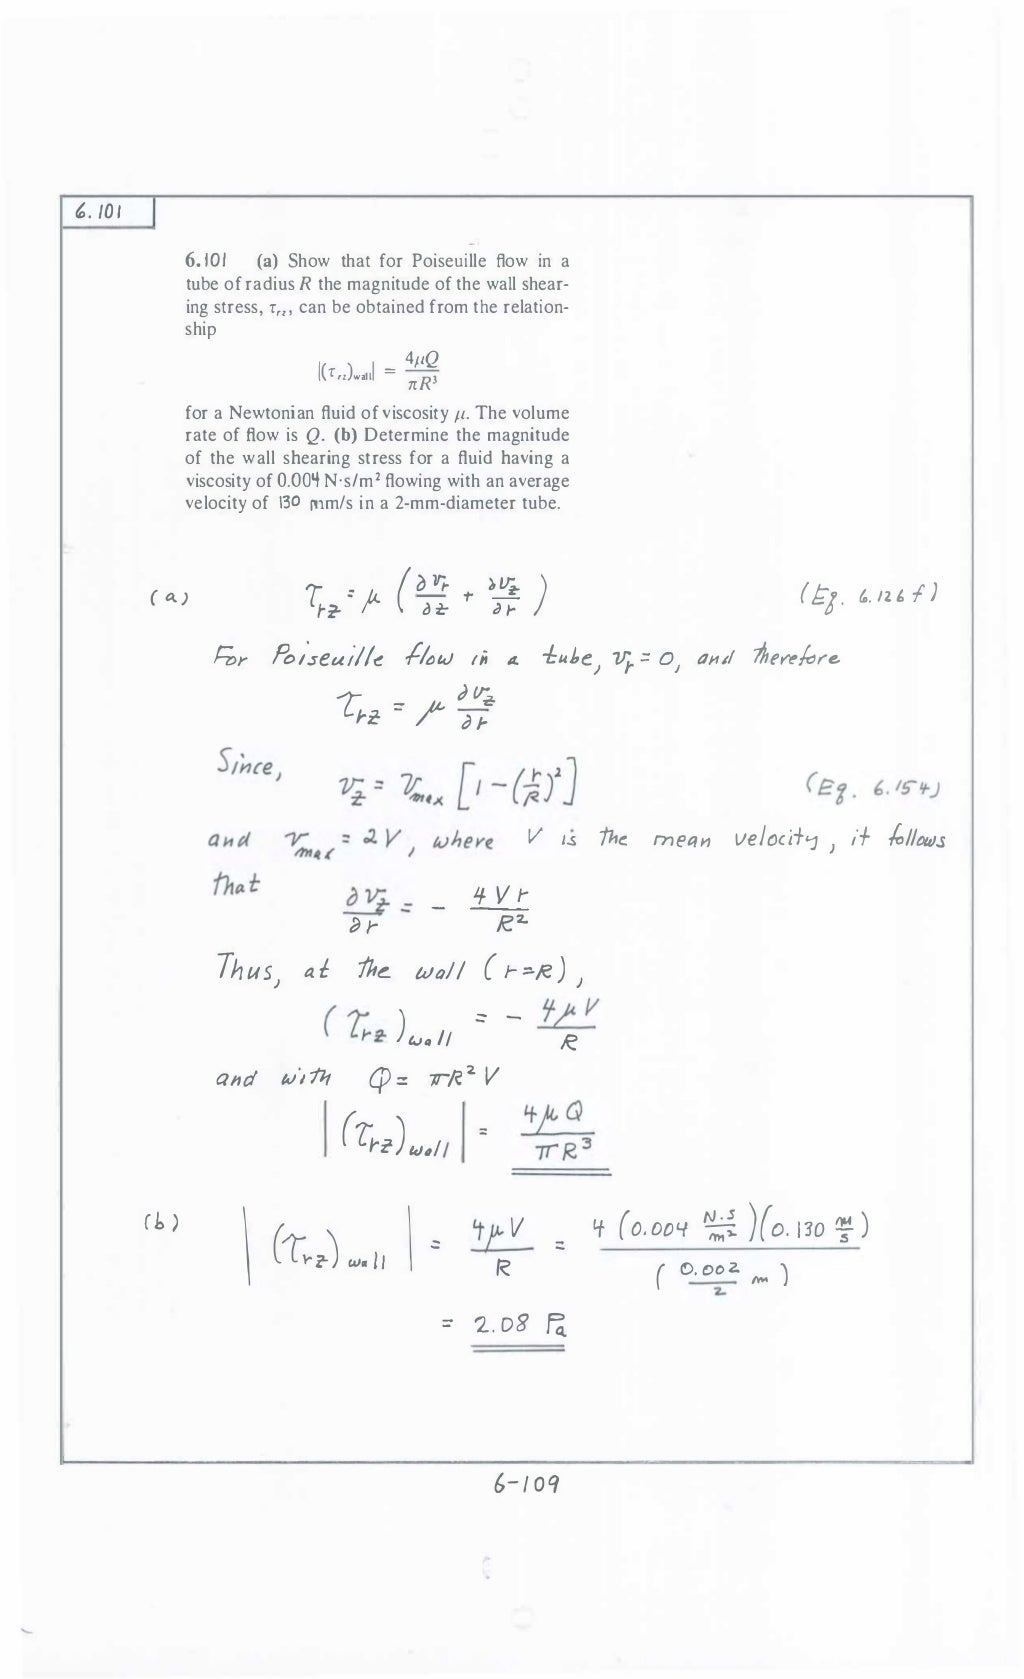 6.101
6.101 (a) Show that for Poiseuille flow in a
tube of radius R the magnitude of the wall shear-
ing stress, τrz, can be obtained from the relation-
ship
|(τrz)wall| = 4μQ / πR³
for a Newtonian fluid of viscosity μ. The volume
rate of flow is Q. (b) Determine the magnitude
of the wall shearing stress for a fluid having a
viscosity of 0.004 N·s/m² flowing with an average
velocity of 130 mm/s in a 2-mm-diameter tube.
(a) τrz = μ (∂vr/∂z + ∂vz/∂r) (Eq. 6.126f)
For Poiseuille flow in a tube, vr = 0, and therefore
τrz = μ ∂vz/∂r
Since,
vz = vmax [1 - (r/R)²] (Eq. 6.154)
and vmax = 2V, where V is the mean velocity, it follows
that
∂vz/∂r = - 4Vr/R²
Thus, at the wall (r=R),
(τrz)wall = - 4μV/R
and with Q = πR²V
|(τrz)wall| = 4μQ / πR³
(b) |(τrz)wall| = 4μV/R = 4 (0.004 N·s/m²)(0.130 m/s) / (0.002/2 m)
= 2.08 Pa
6-109